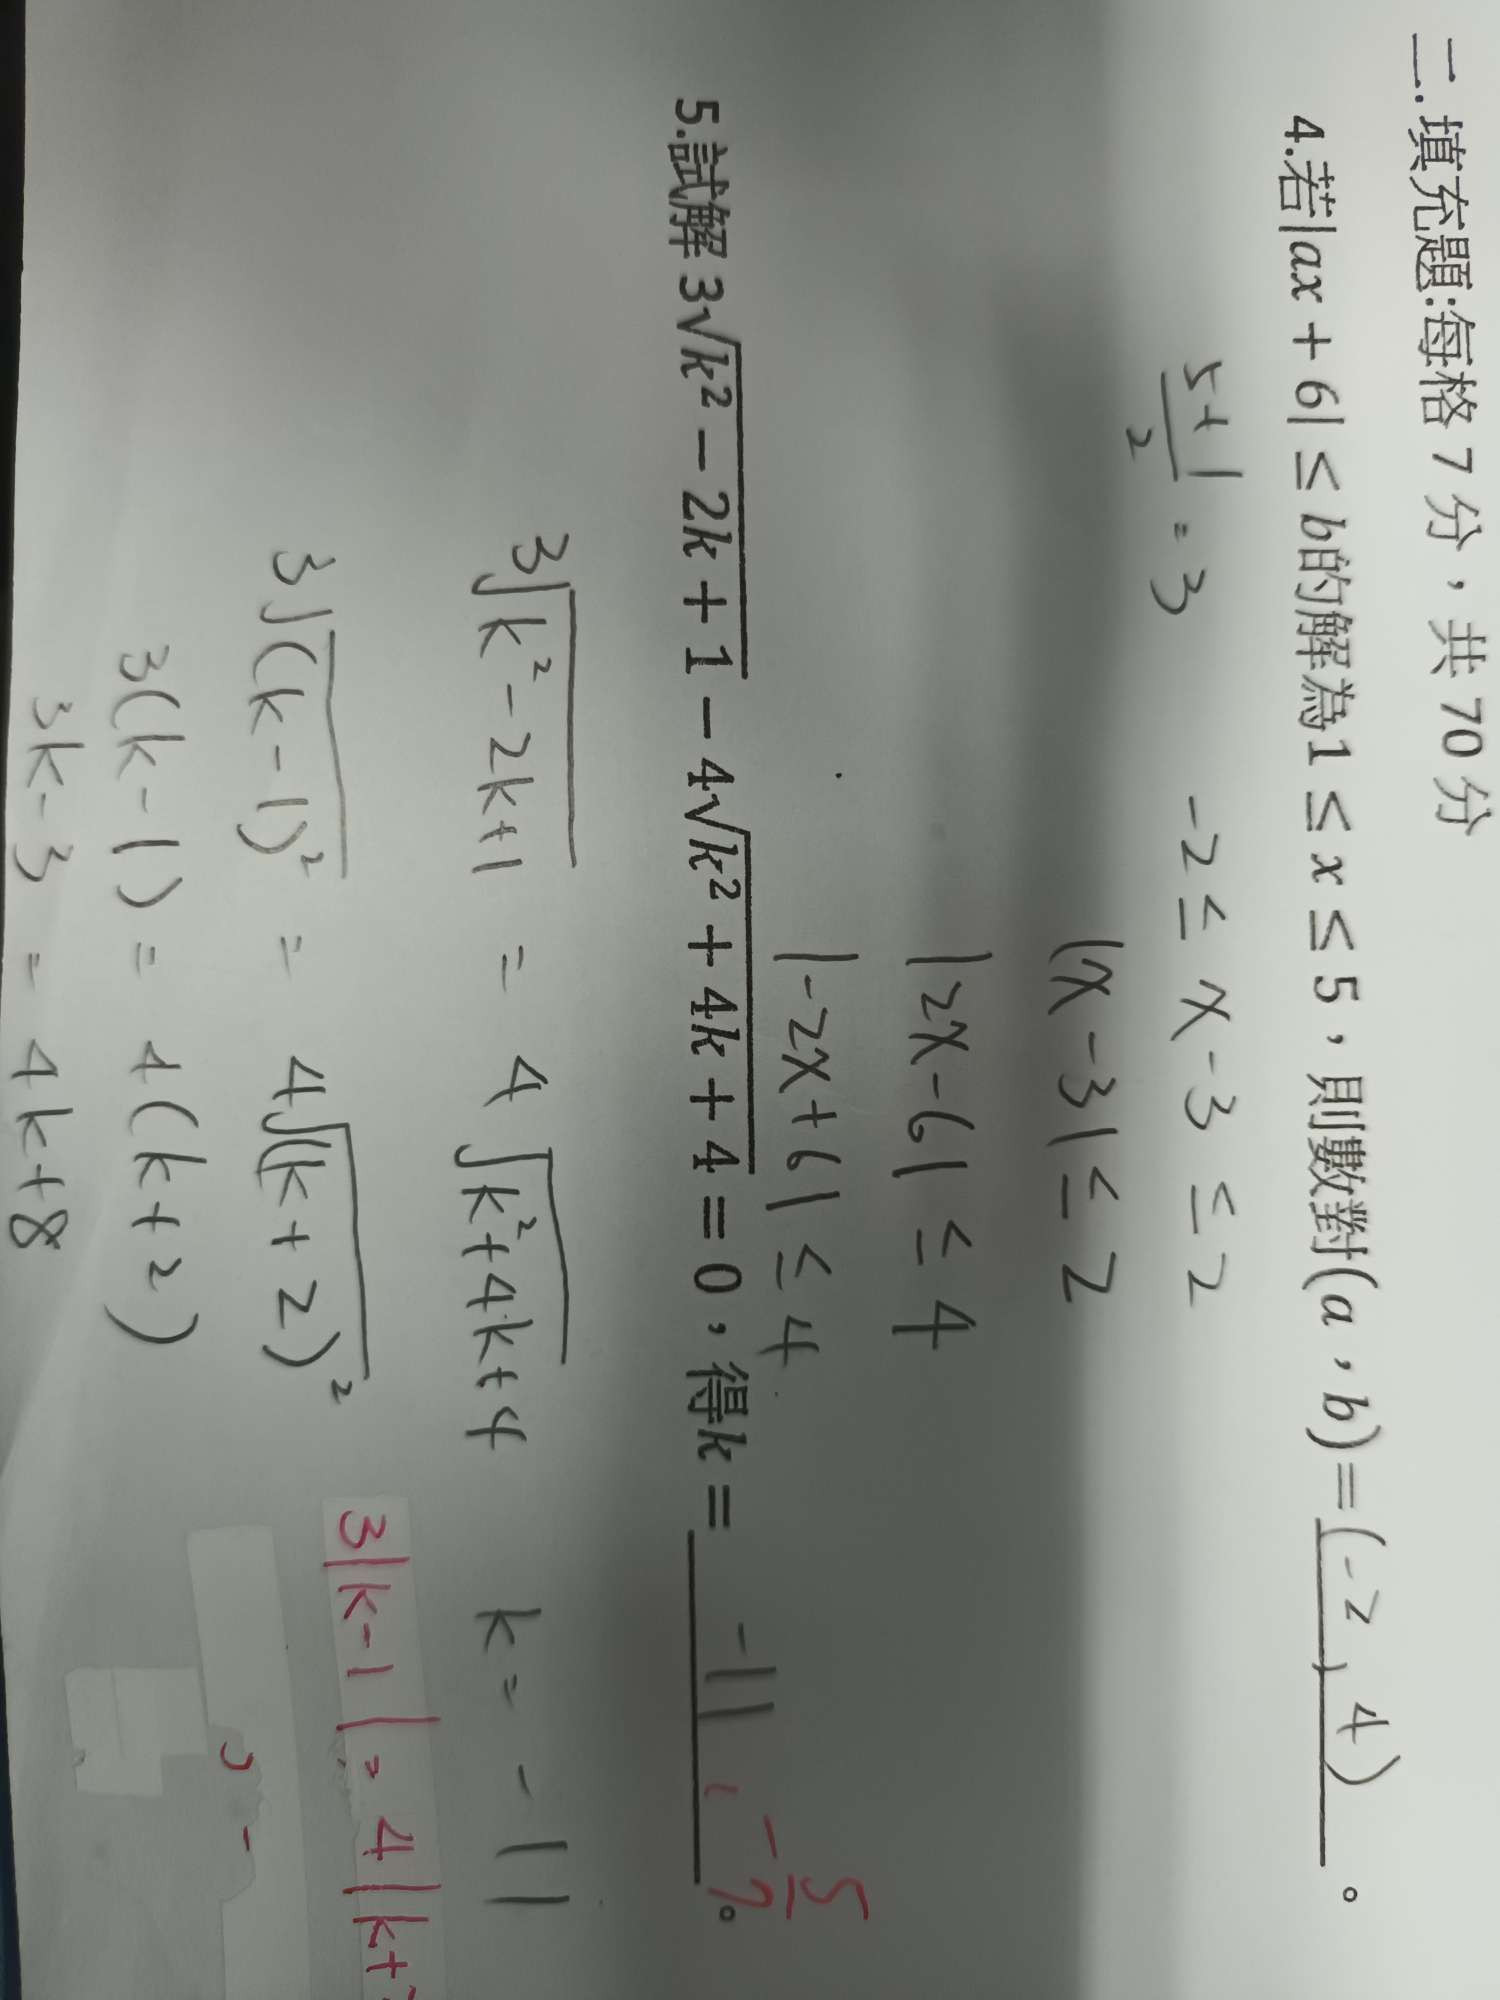 二.填充題:每格 7 分，共 70 分
4.若|ax + 6| ≤ b的解為1 ≤ x ≤ 5，則數對(a，b)=(-2, 4)。
5+1/2 = 3
-2 ≤ x-3 ≤ 2
|x-3| ≤ 2
|2x-6| ≤ 4
|-2x+6| ≤ 4
5.試解 3√(k² − 2k + 1) − 4√(k² + 4k + 4) = 0，得k = -11, -5/7。
3√(k²-2k+1) = 4√(k²+4k+4)
k = -11
3√(k-1)² = 4√(k+2)²
3|k-1| = 4|k+2
3(k-1) = 4(k+2)
3k-3 = 4k+8